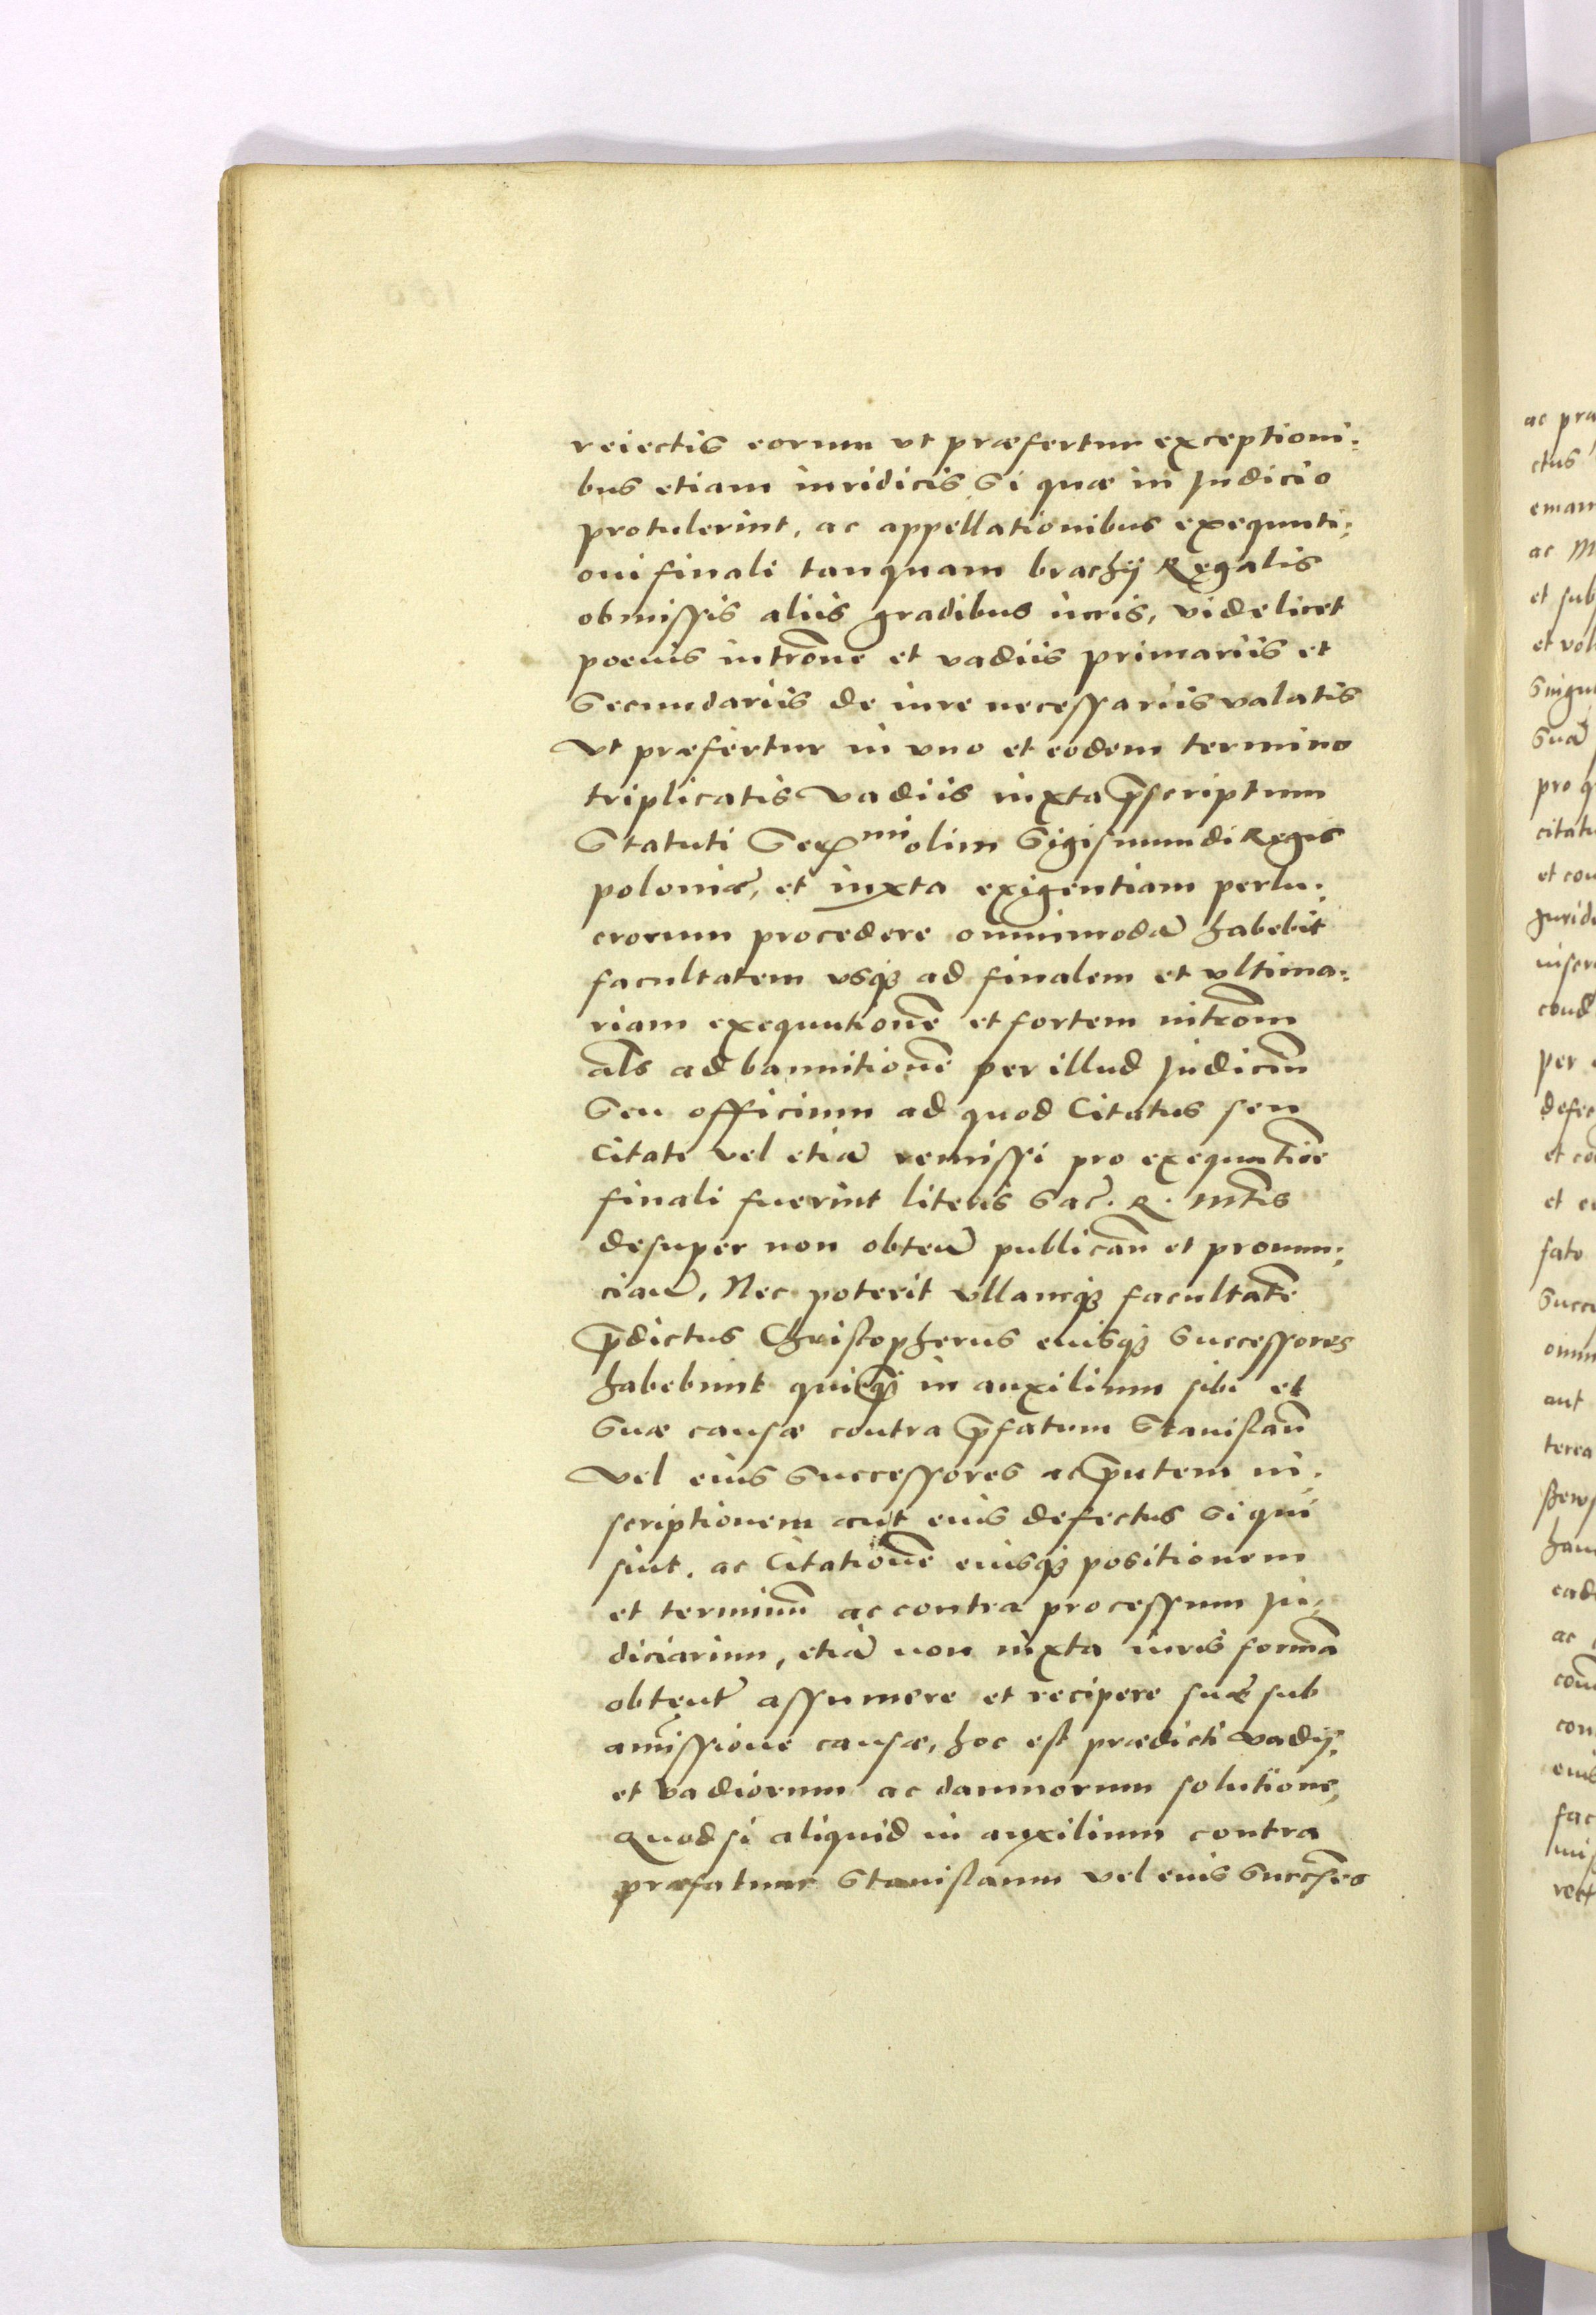 reiectis eorum vt præfertur exceptioni:
bus etiam iuridicis si quæ in Judicio
protulerint, ac appellationibus exequuti:
oni finali tanquam brachÿ Regalis
obmissis aliis gradibus iuris, videlicet
poenis intrōne et vadiis primariis et
secundariis de iure necessariis valatis
vt præfertur in vno et eodem termino
triplicatis vadiis iuxta p̄scriptum
Statuti Ser^mi olim Sigismundi Regis
poloniæ, et iuxta exigentiam perlu:
crorum procedere omnimodā habebit
facultatem vsq3 ad finalem et vltima:
riam exequutionē et fortem intrōm
al̄s ad bannitionē per illud Judiciū
seu officium ad quod Citatus seu
Citati vel etiā remissi pro exequutiōe
finali fuerint literis Sac. R. Mtis
desuper non obten̄ publicān et pronun:
cian̄, Nec poterit vllamq3 facultatē
p̄dictus Christopherus eiusq3 successores
habebunt quicq̄ in auxilium sibi et
suæ causæ contra p̄fatum Stanislaū
vel eius successores ac p̄ntem in:
scriptionem aut eius defectus si qui
sint. ac Citationē eiusq3 positionem
et terminū ac contra processum Ju:
diciarium, etiā non iuxta iuris formā
obtent̄ assumere et recipere suæ sub
amissione causæ, hoc est prædicti vadÿ.
et vadiorum ac damnorum solutione,
quod si aliquid in auxilium contra
præfatum Stanislaum vel eius succs̄res